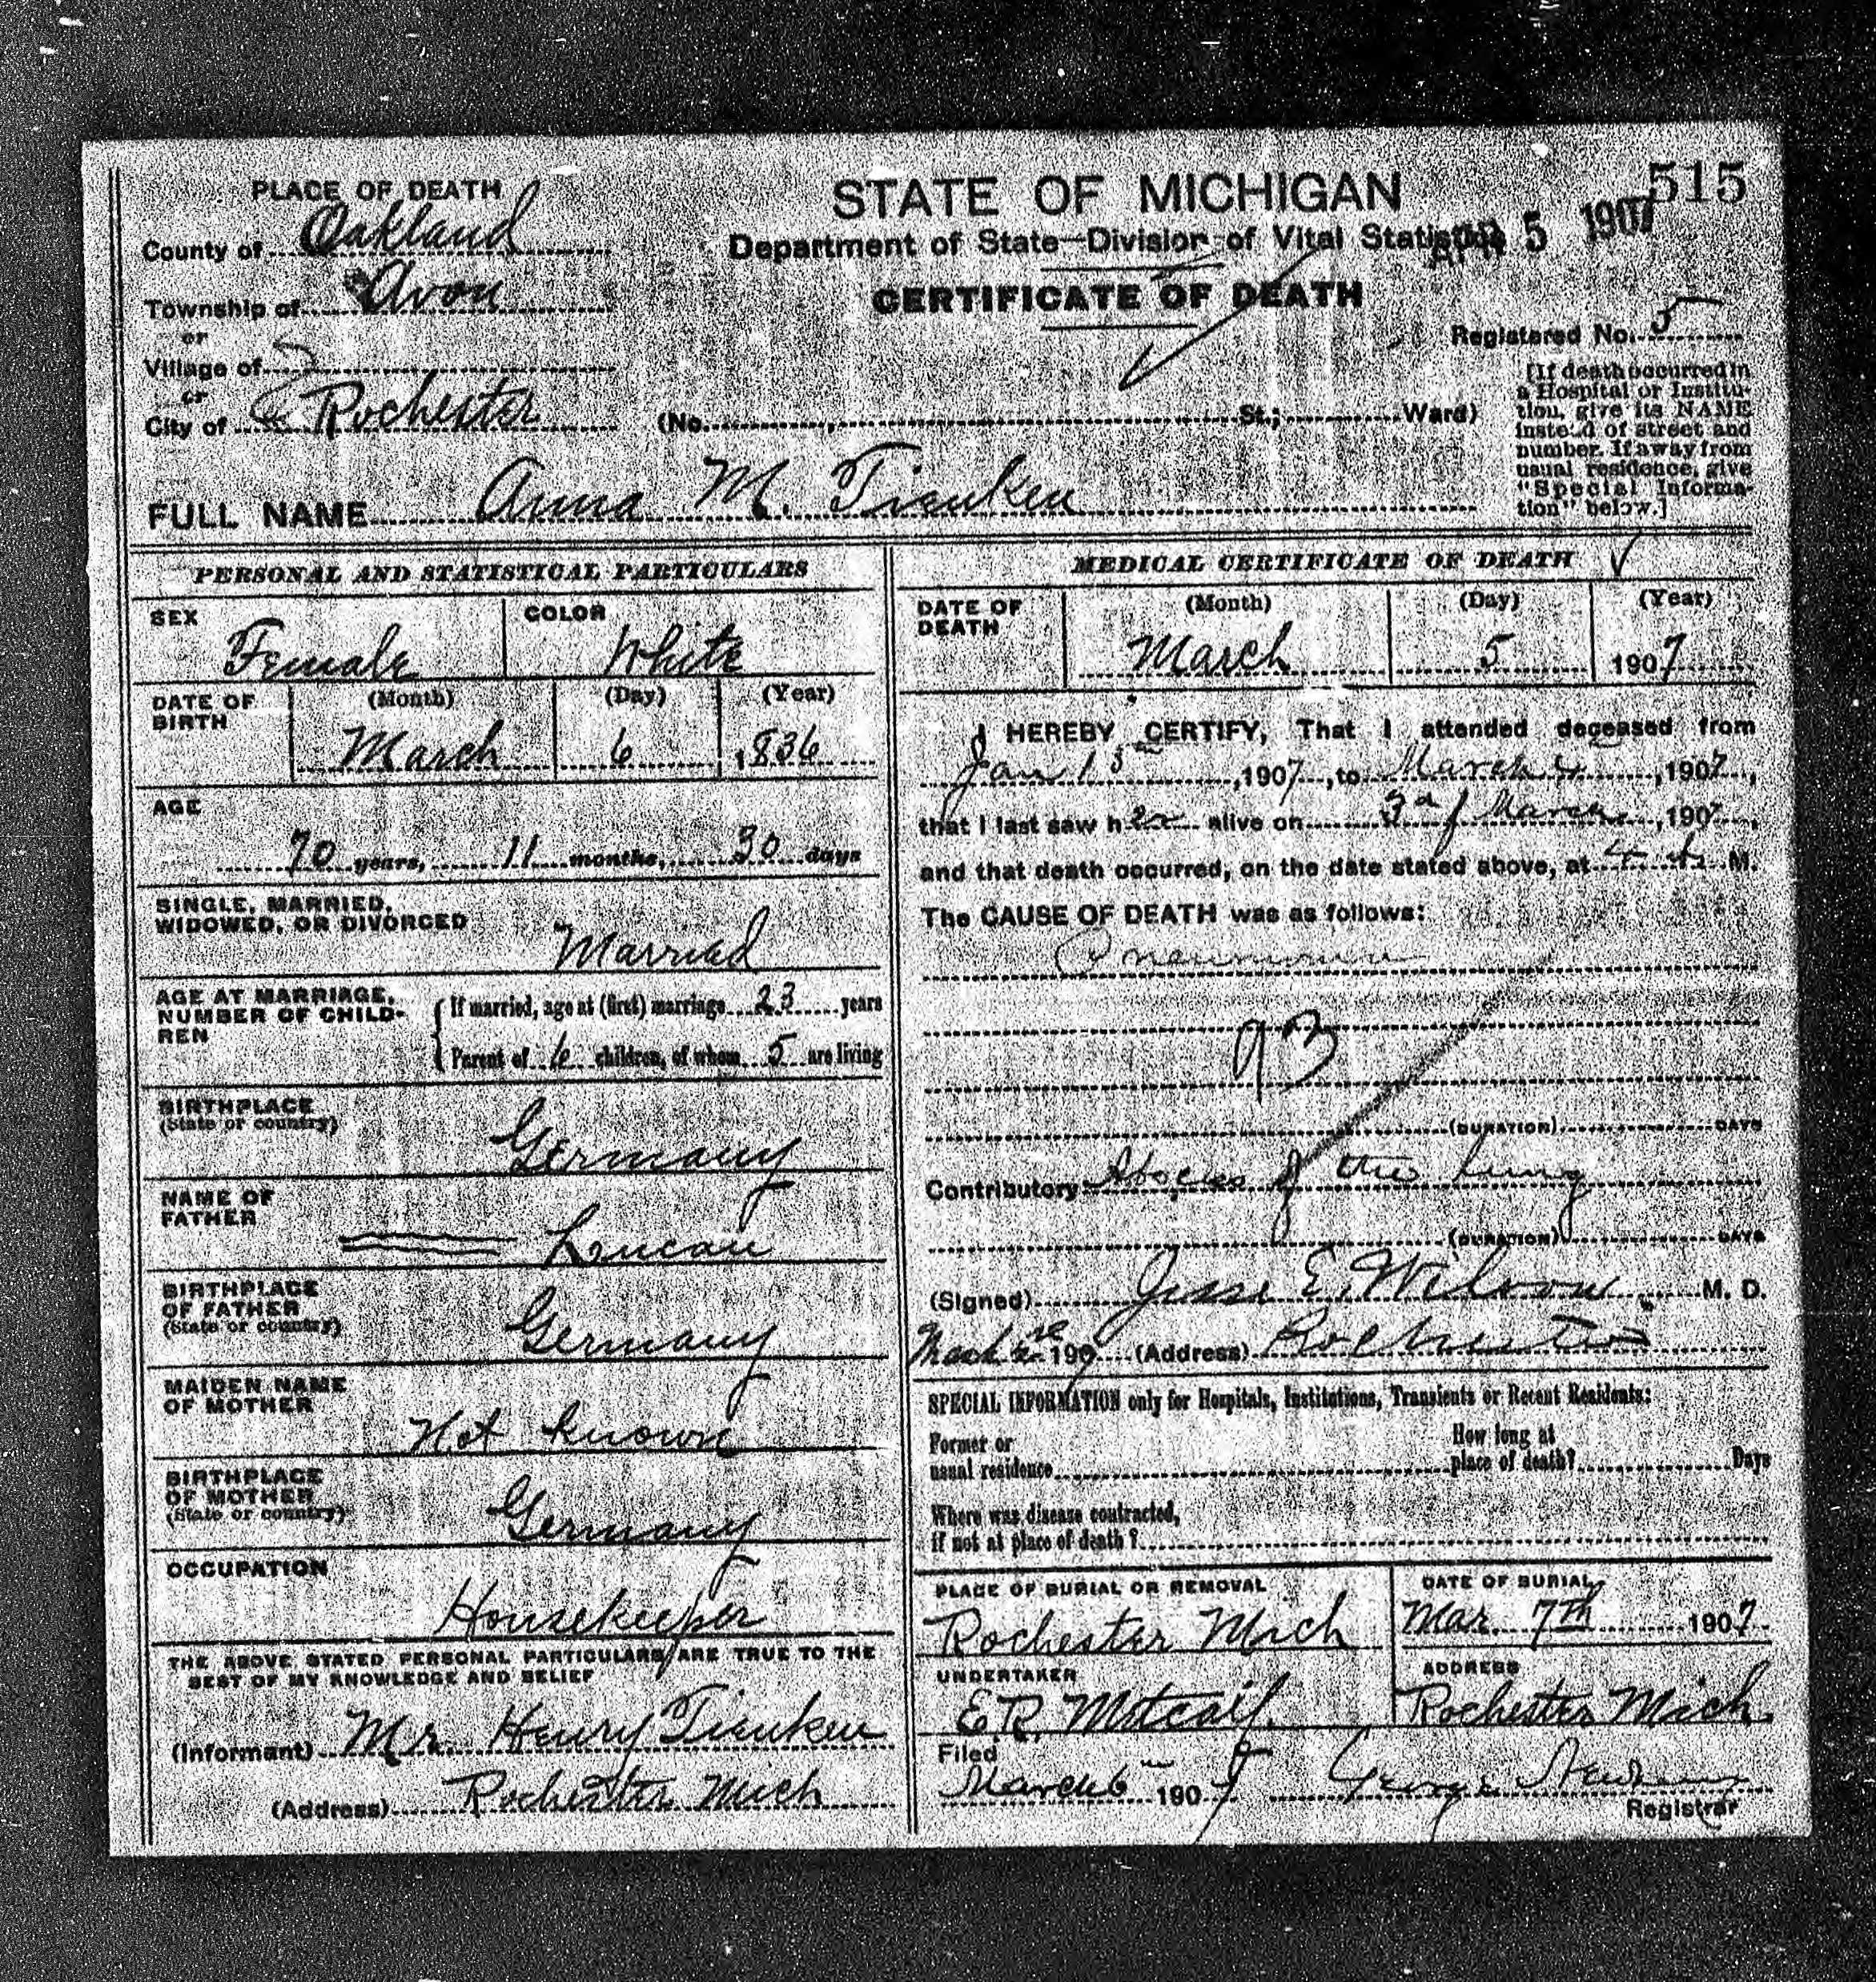 515
PLACE OF DEATH
STATE OF MICHIGAN
County of Oakland
Department of State—Division of Vital Statistics
APR 5 1907
Township of Avon
CERTIFICATE OF DEATH
or
Registered No. 5
Village of
or
City of Rochester (No. , St.; Ward)
[If death occurred in
a Hospital or Institu-
tion, give its NAME
instead of street and
number. If away from
usual residence, give
"Special Informa-
tion" below.]
FULL NAME Anna M. Tienken
PERSONAL AND STATISTICAL PARTICULARS
SEX
Female
COLOR
White
DATE OF
BIRTH
(Month) (Day) (Year)
March 6 1836
AGE
70 years, 11 months, 30 days
SINGLE, MARRIED,
WIDOWED, OR DIVORCED
Married
AGE AT MARRIAGE,
NUMBER OF CHILD-
REN
If married, age at (first) marriage 23 years
Parent of 6 children, of whom 5 are living
BIRTHPLACE
(State or country)
Germany
NAME OF
FATHER
BIRTHPLACE
OF FATHER
(State or country)
Germany
MAIDEN NAME
OF MOTHER
Not known
BIRTHPLACE
OF MOTHER
(State or country)
Germany
OCCUPATION
Housekeeper
THE ABOVE STATED PERSONAL PARTICULARS ARE TRUE TO THE
BEST OF MY KNOWLEDGE AND BELIEF
(Informant) Mr. Henry Tienken
(Address) Rochester Mich
MEDICAL CERTIFICATE OF DEATH
DATE OF
DEATH
(Month) (Day) (Year)
March 5 1907
I HEREBY CERTIFY, That I attended deceased from
Jan 1 , 1907, to March 4 , 1907,
that I last saw her alive on 3d of March , 1907,
and that death occurred, on the date stated above, at 4 M.
The CAUSE OF DEATH was as follows:
Pneumonia
93
(DURATION) DAYS
Contributory Abscess of the lung
(DURATION) DAYS
(Signed) Jesse E. Wilson M. D.
March 190 (Address) Rochester
SPECIAL INFORMATION only for Hospitals, Institutions, Transients or Recent Residents:
Former or
usual residence
How long at
place of death? Days
Where was disease contracted,
if not at place of death?
PLACE OF BURIAL OR REMOVAL
Rochester Mich
DATE OF BURIAL
Mar. 7th 1907
UNDERTAKER
E.R. Metcalf.
ADDRESS
Rochester Mich
Filed
March 6 1907 George
Registrar